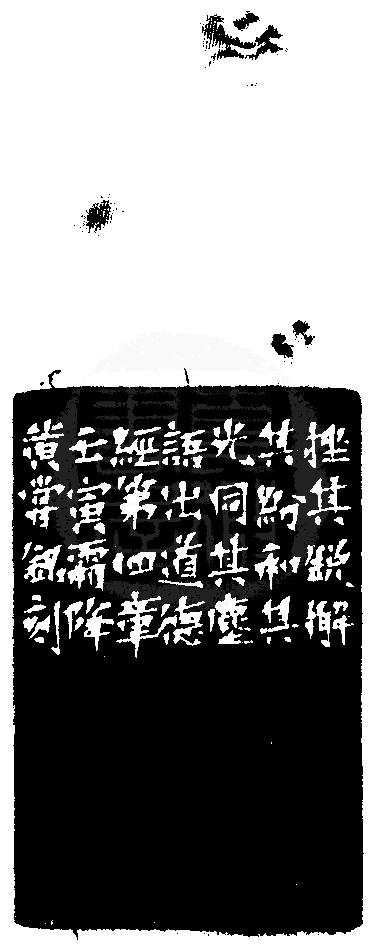 挫其銳解
其紛和其
光同其塵
語出道德
經第四章
壬寅霜降
黃嘗銘刻